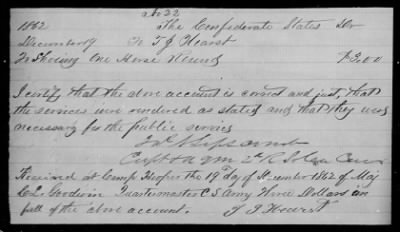 No 22
1862 The Confederate States Dr
December 19 To T J Hearst
To Shoeing One Horse Round $3.00
I certify that the above account is correct and just, that
the services were rendered as stated and that they were
necessary for the public service
Capt & A Q M
Received at Camp the 19th day of December 1862 of Maj
C L Goodwin Quartermaster C S Army Three Dollars in
full of the above account. T J Hearst